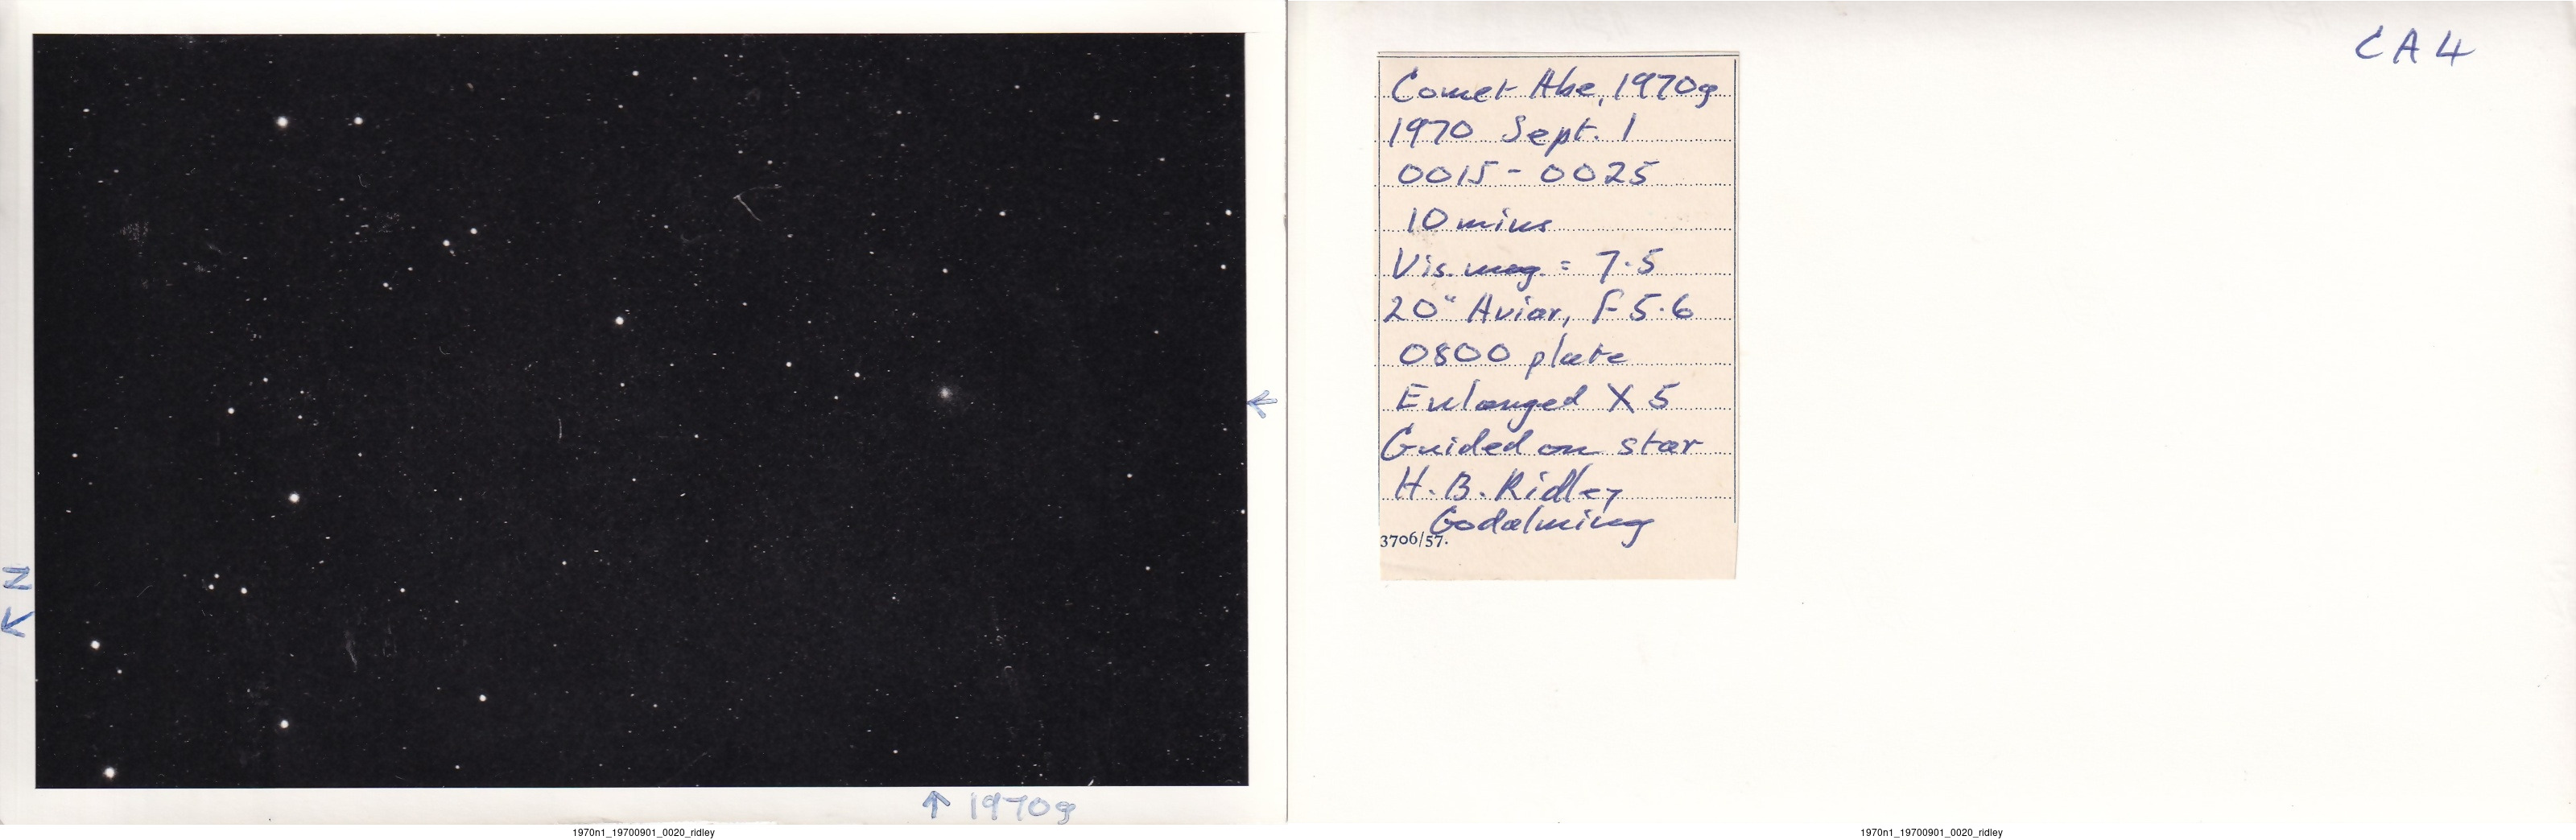 N
↑ 1970g
1970n1_19700901_0020_ridley
CA4
Comet Abe, 1970g
1970 Sept. 1
0015 - 0025
10 mins
Vis. mag. = 7.5
20" Aviar, F 5.6
0800 plate
Enlarged X 5
Guided on star
H.B. Ridley
Godalming
3706/57.
1970n1_19700901_0020_ridley